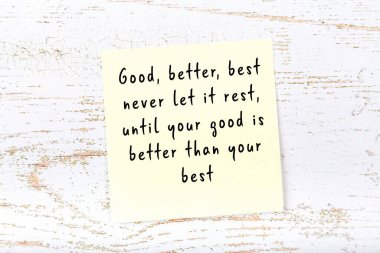 Good, better, best
never let it rest,
until your good is
better than your
best